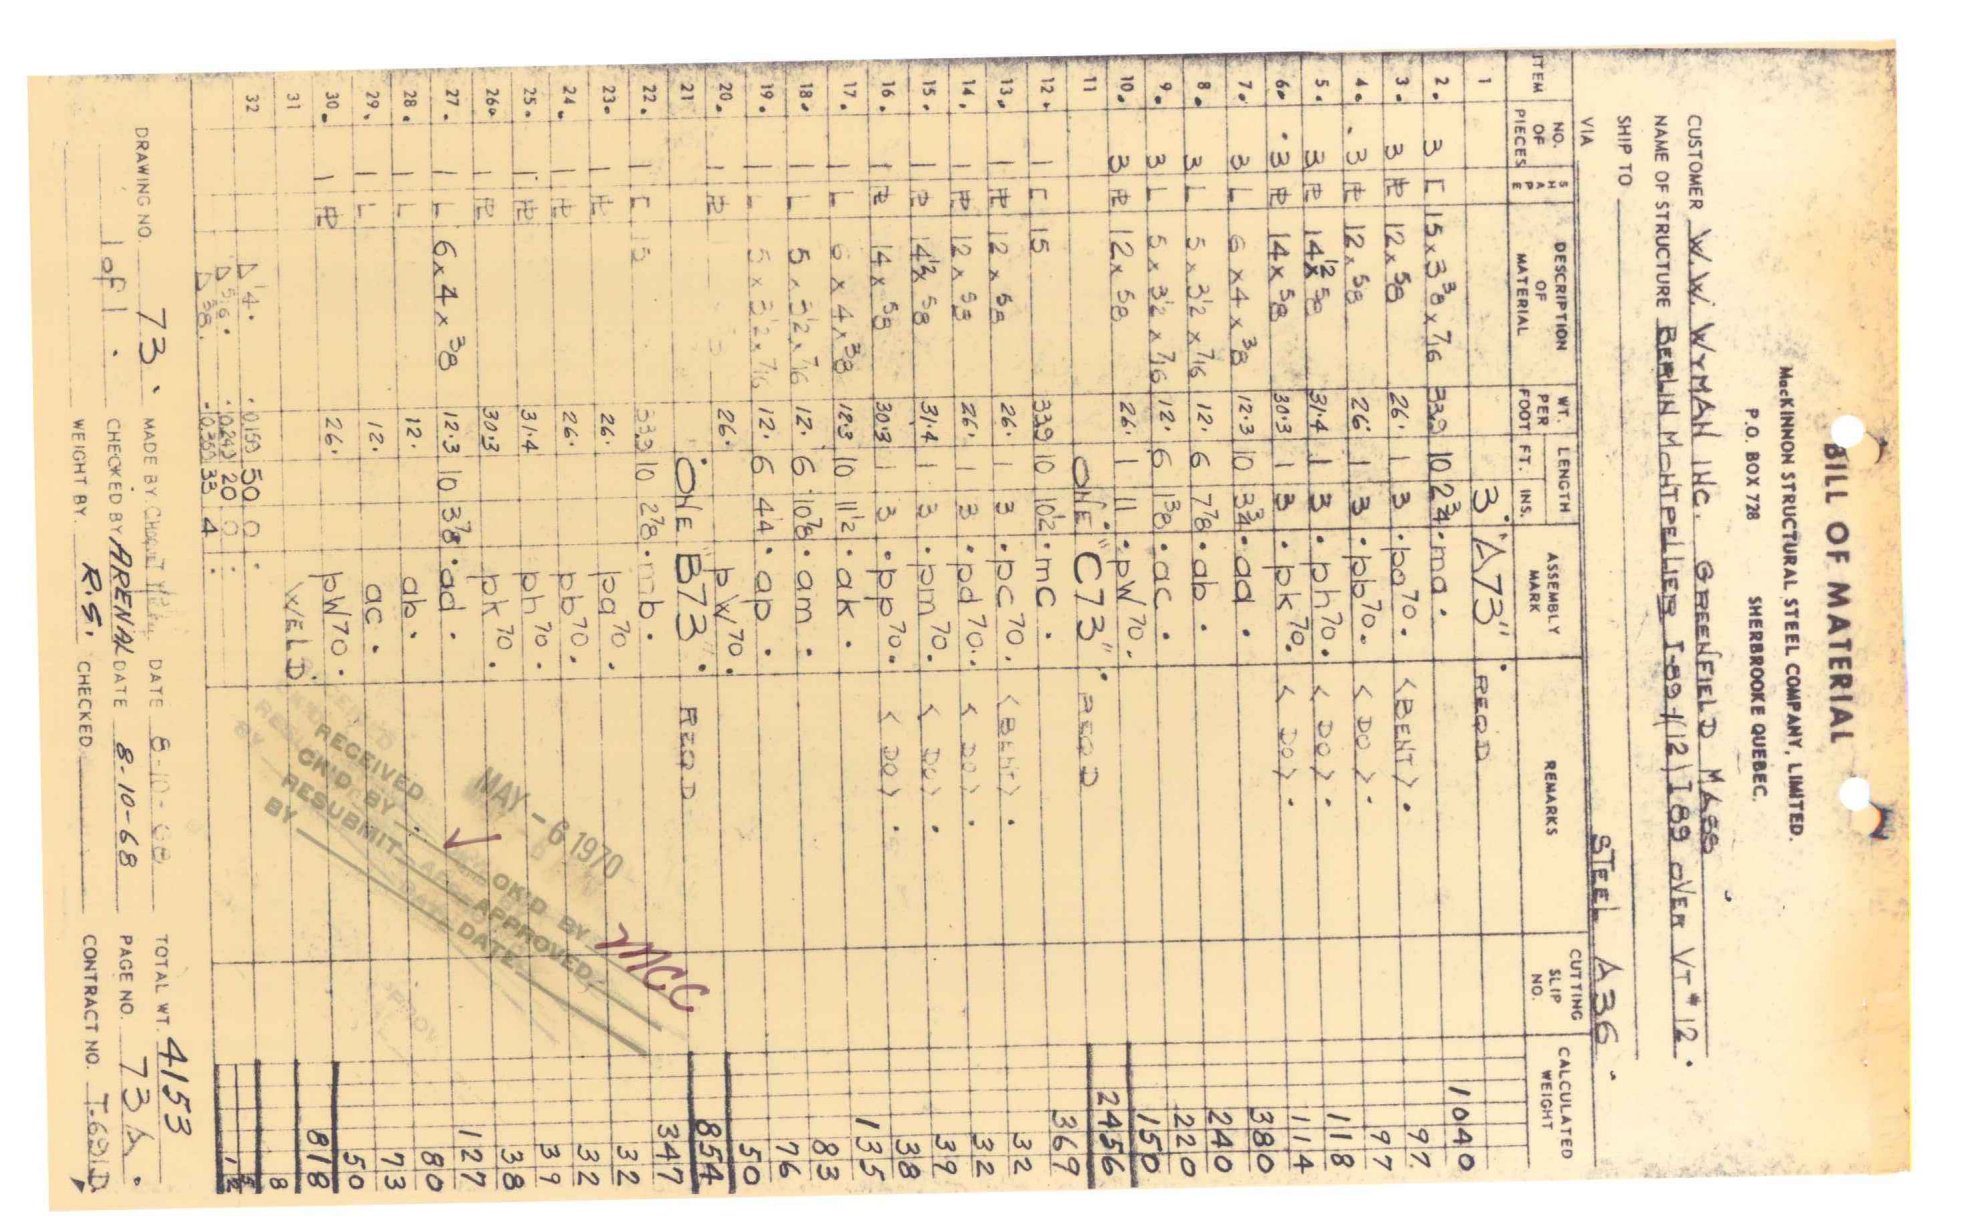 BILL OF MATERIAL
MacKINNON STRUCTURAL STEEL COMPANY, LIMITED.
P.O. BOX 728 SHERBROOKE QUEBEC.
CUSTOMER W.W. WYMAN INC. GREENFIELD MASS
NAME OF STRUCTURE BERLIN MONTPELLIER I-89-1(12) I 89 OVER VT #12.
SHIP TO
VIA STEEL A36.
ITEM NO. OF PIECES SHAPE DESCRIPTION OF MATERIAL WT. PER FOOT LENGTH FT. INS. ASSEMBLY MARK REMARKS CUTTING SLIP NO. CALCULATED WEIGHT
1 3. "A73". REQD
2. 3 [ 15 x 3 3/8 x 7/16 33.9 10 2 3/4 . ma. 1040
3. 3 PL 12 x 5/8 26. 1 3 . pa70. <BENT>. 97.
4. 3 PL 12 x 5/8 26. 1 3 . pb70. < DO >. 97
5. 3 PL 14 1/2 x 5/8 31.4 1 3 . ph70. < DO >. 118
6. 3 PL 14 x 5/8 30.3 1 3 . pk70. < DO >. 114
7. 3 L 6 x 4 x 3/8 12.3 10 3 3/4 . ad . 380
8. 3 L 5 x 3 1/2 x 7/16 12. 6 7 7/8 . ab . 240
9. 3 L 5 x 3 1/2 x 7/16 12. 6 1 3/8 . ac . 220
10. 3 PL 12 x 5/8 26. 1 11 . pW70. 150
11 ONE "C73". REQD 2456
12. 1 [ 15 33.9 10 10 1/2 . mc . 369
13. 1 PL 12 x 5/8 26. 1 3 . pc70. <BENT>. 32
14. 1 PL 12 x 5/8 26. 1 3 . pd70. < DO >. 32
15. 1 PL 14 1/2 x 5/8 31.4 1 3 . pm70. < DO >. 39
16. 1 PL 14 x 5/8 30.3 1 3 . pp70. < DO >. 38
17. 1 L 6 x 4 x 3/8 12.3 10 11 1/2 . ak . 135
18. 1 L 5 x 3 1/2 x 7/16 12. 6 10 7/8 . am . 83
19. 1 L 5 x 3 1/2 x 7/16 12. 6 4 1/4 . ap . 76
20. 1 PL 26. pW70. 50
21 ONE "B73". REQD 854
22. 1 [ 15 33.9 10 2 7/8 . mb . 347
23. 1 PL 26. pa70. 32
24. 1 PL 26. pb70. 32
25. 1 PL 31.4 ph70. 39
26. 1 PL 30.3 pk70. 38
27. 1 L 6 x 4 x 3/8 12.3 10 3 7/8 . ad . 127
28. 1 L 12. ab. 80
29. 1 L 12. ac . 73
30. 1 PL 26. pW70. 50
31 WELD. 818
32 1/4. .0.159 50 0. 8
5/16. 20 0. 5
3/8. 33 4. 12
MAY - 6 1970
RECEIVED
CK'D BY OK'D BY MCC
RESUBMIT APPROVED
BY DATE
DRAWING NO. 73. MADE BY DATE 8-10-68 TOTAL WT. 4153
1 of 1. CHECKED BY ARENAK DATE 8-10-68 PAGE NO. 73A.
WEIGHT BY. R.S. CHECKED CONTRACT NO. T-691D